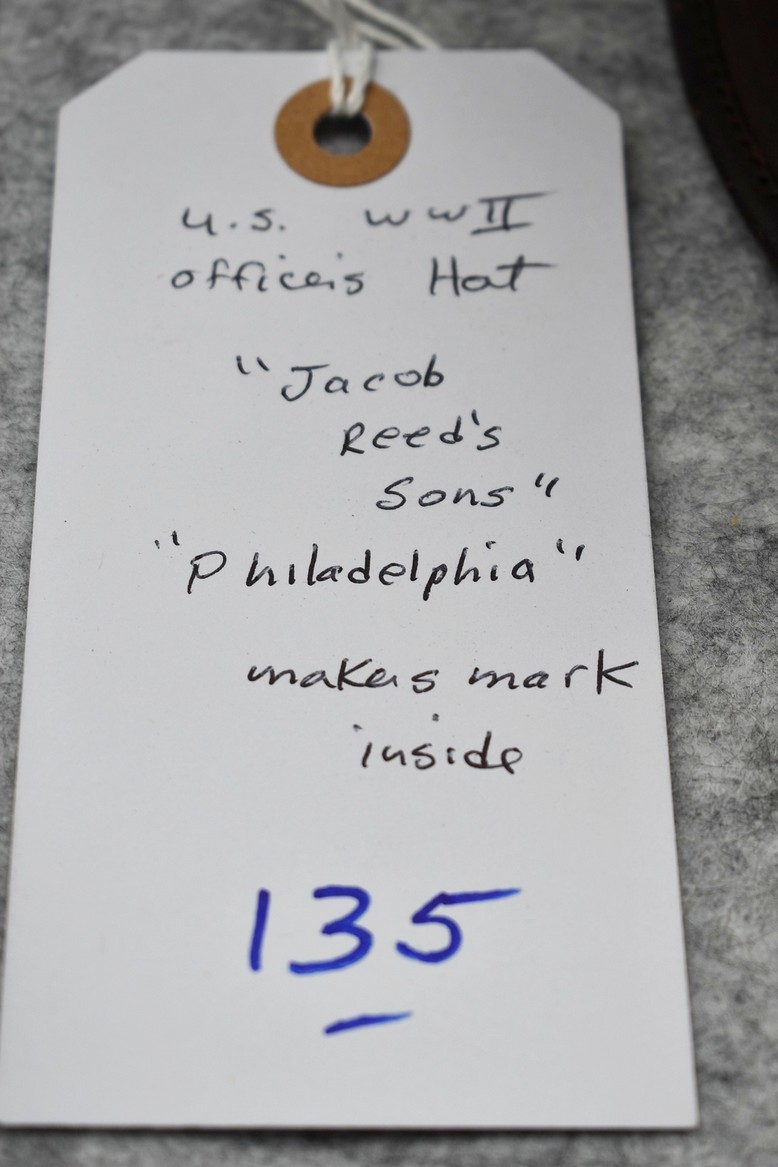 U.S. WWII
officer's Hat
"Jacob
Reed's
Sons"
"Philadelphia"
makers mark
inside
135